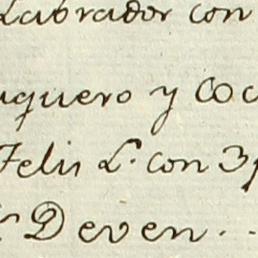 Labrador con
quero y Coc
Felis L. con 3
Deven..